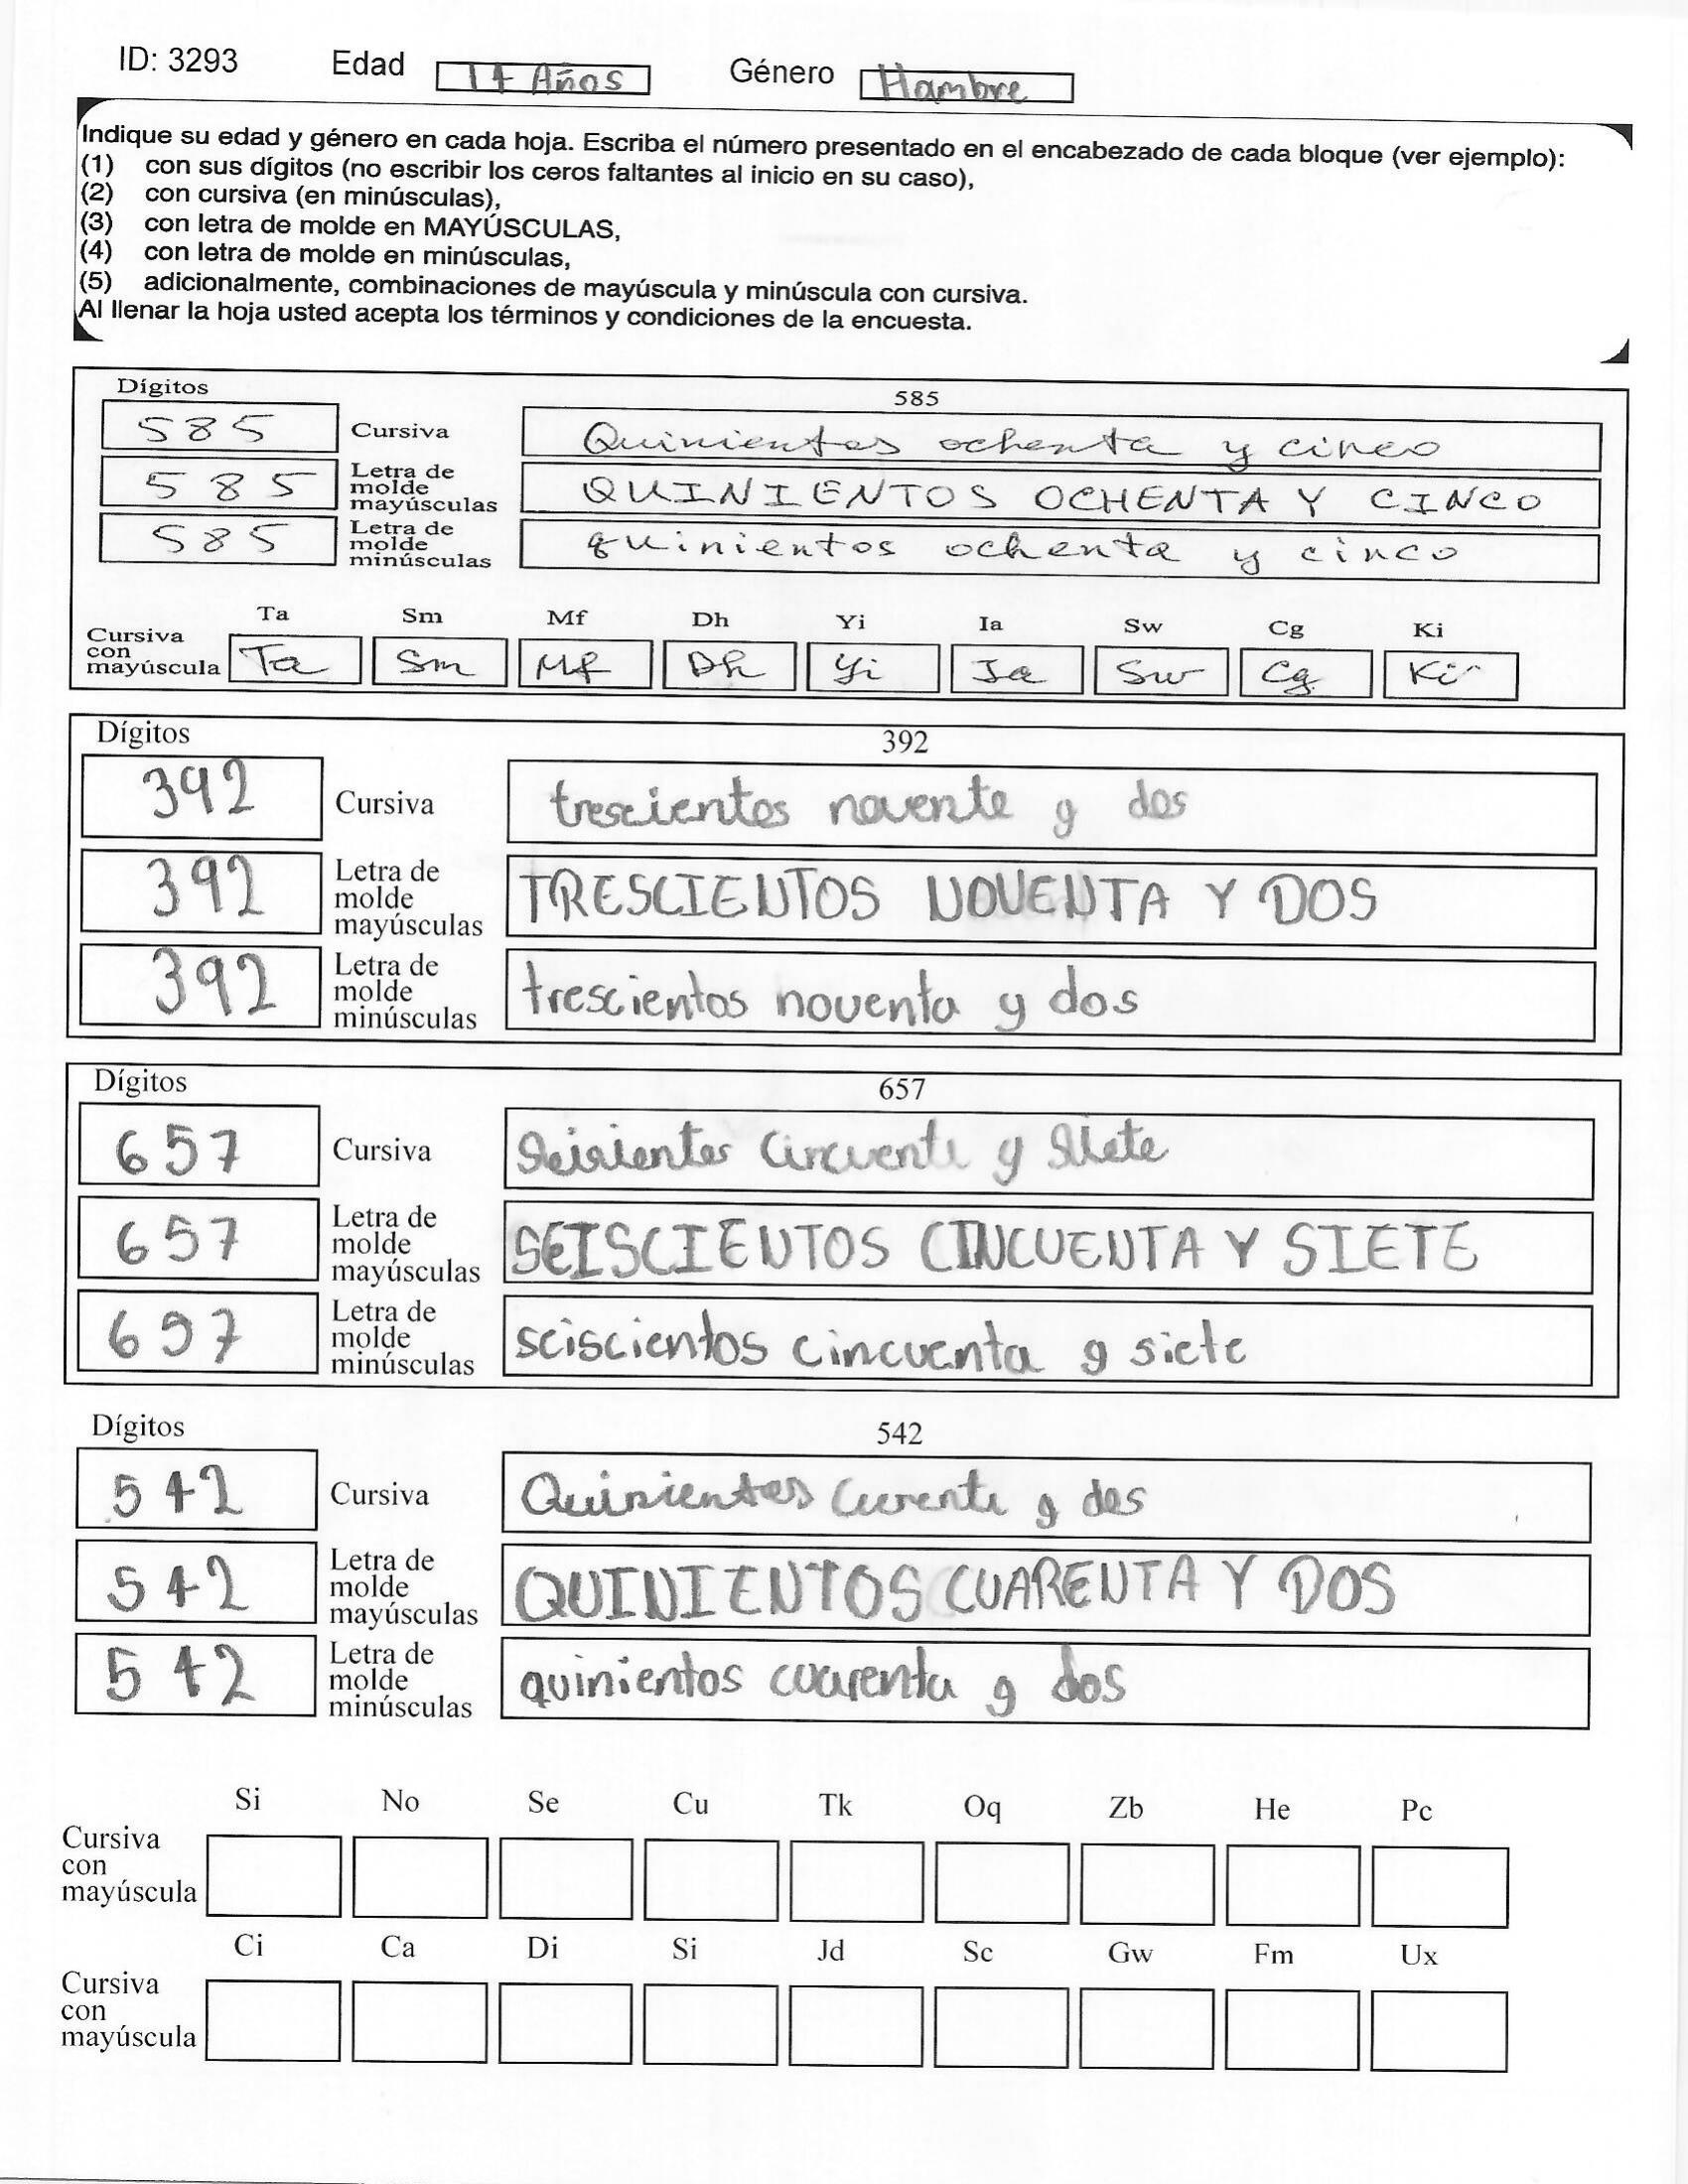 ID: 3293 Edad 17 Años Género Hombre
Indique su edad y género en cada hoja. Escriba el número presentado en el encabezado de cada bloque (ver ejemplo):
(1) con sus dígitos (no escribir los ceros faltantes al inicio en su caso),
(2) con cursiva (en minúsculas),
(3) con letra de molde en MAYÚSCULAS,
(4) con letra de molde en minúsculas,
(5) adicionalmente, combinaciones de mayúscula y minúscula con cursiva.
Al llenar la hoja usted acepta los términos y condiciones de la encuesta.
Dígitos 585
585 Cursiva Quinientos ochenta y cinco
585 Letra de molde mayúsculas QUINIENTOS OCHENTA Y CINCO
585 Letra de molde minúsculas quinientos ochenta y cinco
Ta Sm Mf Dh Yi Ia Sw Cg Ki
Cursiva con mayúscula Ta Sm Mf Dh Yi Ia Sw Cg Ki
Dígitos 392
392 Cursiva trescientos novente y dos
392 Letra de molde mayúsculas TRESCIENTOS NOVENTA Y DOS
392 Letra de molde minúsculas trescientos noventa y dos
Dígitos 657
657 Cursiva y Siete
657 Letra de molde mayúsculas SEISCIENTOS CINCUENTA Y SIETE
657 Letra de molde minúsculas seiscientos cincuenta y siete
Dígitos 542
542 Cursiva Quinientos y dos
542 Letra de molde mayúsculas QUINIENTOS CUARENTA Y DOS
542 Letra de molde minúsculas quinientos cuarenta y dos
Si No Se Cu Tk Oq Zb He Pc
Cursiva con mayúscula
Ci Ca Di Si Jd Sc Gw Fm Ux
Cursiva con mayúscula